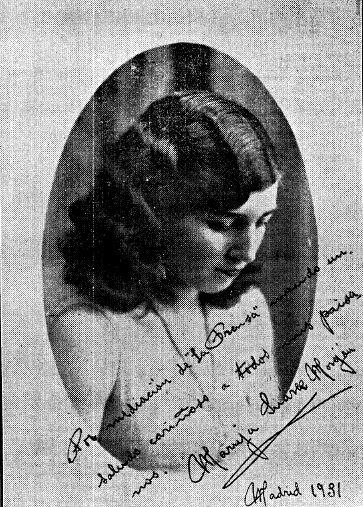 Por mediación de "La Prensa" mando un
saludo cariñoso a todos mis paisa
nos.
Maruja Suárez Morgan
Madrid 1931